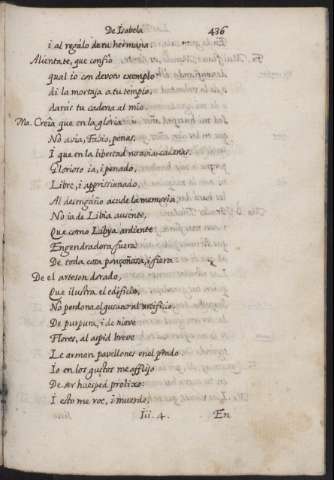 De Isabela 436
i al regalo de tu hermana.
Alientate, que confio
qual io con devoto exemplo
di la mortaja a tu templo,
darás tu cadena al mio.
Ma. Creía que en la gloria
No avia, Fabio, penas,
I que en la libertad no avia cadenas.
Glorioso ia, i penado,
Libre, i apprissionado,
Al desengaño acude la memoria.
No ia de Libia ausente,
Que como Libya ardiente
Engendradora fuera
De toda cosa ponçoñosa, i fiera
De el arteson dorado,
Que ilustra el edificio,
No perdona el gusano al artificio.
De purpura, i de nieve
Flores, al aspid breve
Le armen pavellones en el prado.
Io en los gustos me afflijo
De ser huesped prolixo:
I esto me roe, i muerde,
Iii. 4. En